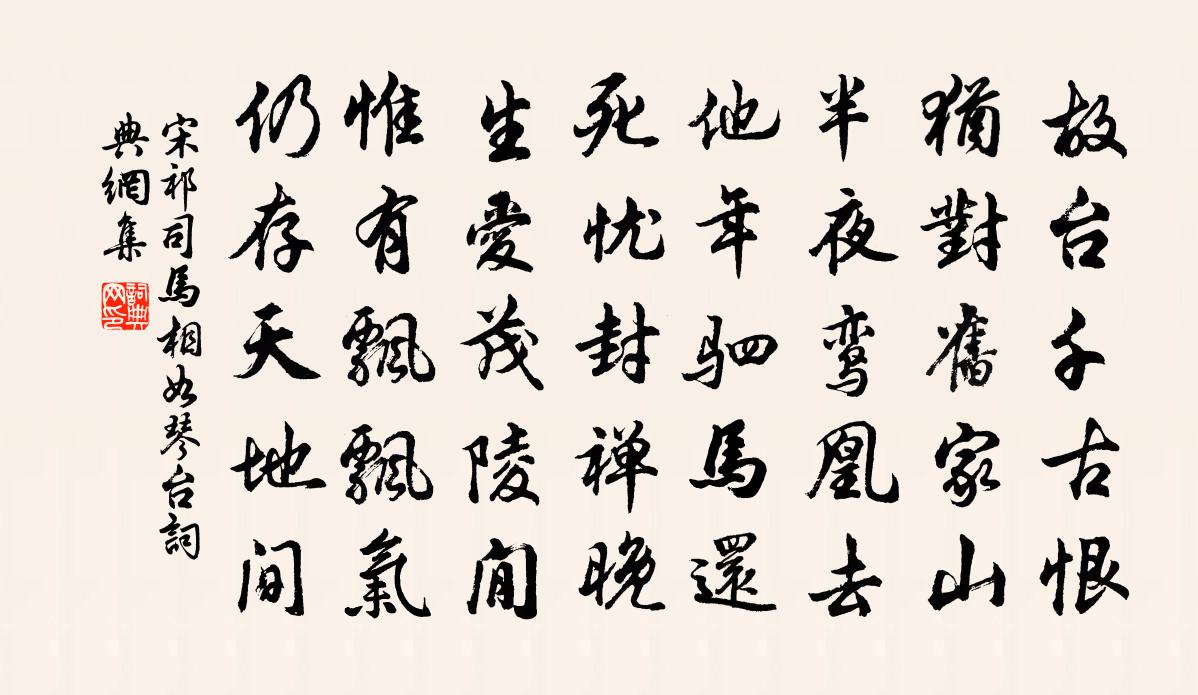 故台千古恨
猶對舊家山
半夜鸾凰去
他年驷馬還
死忧封禅晚
生愛茂陵閒
惟有飄飄氣
仍存天地间
宋祁司馬相如琴台詞
典網集
詞典
网印